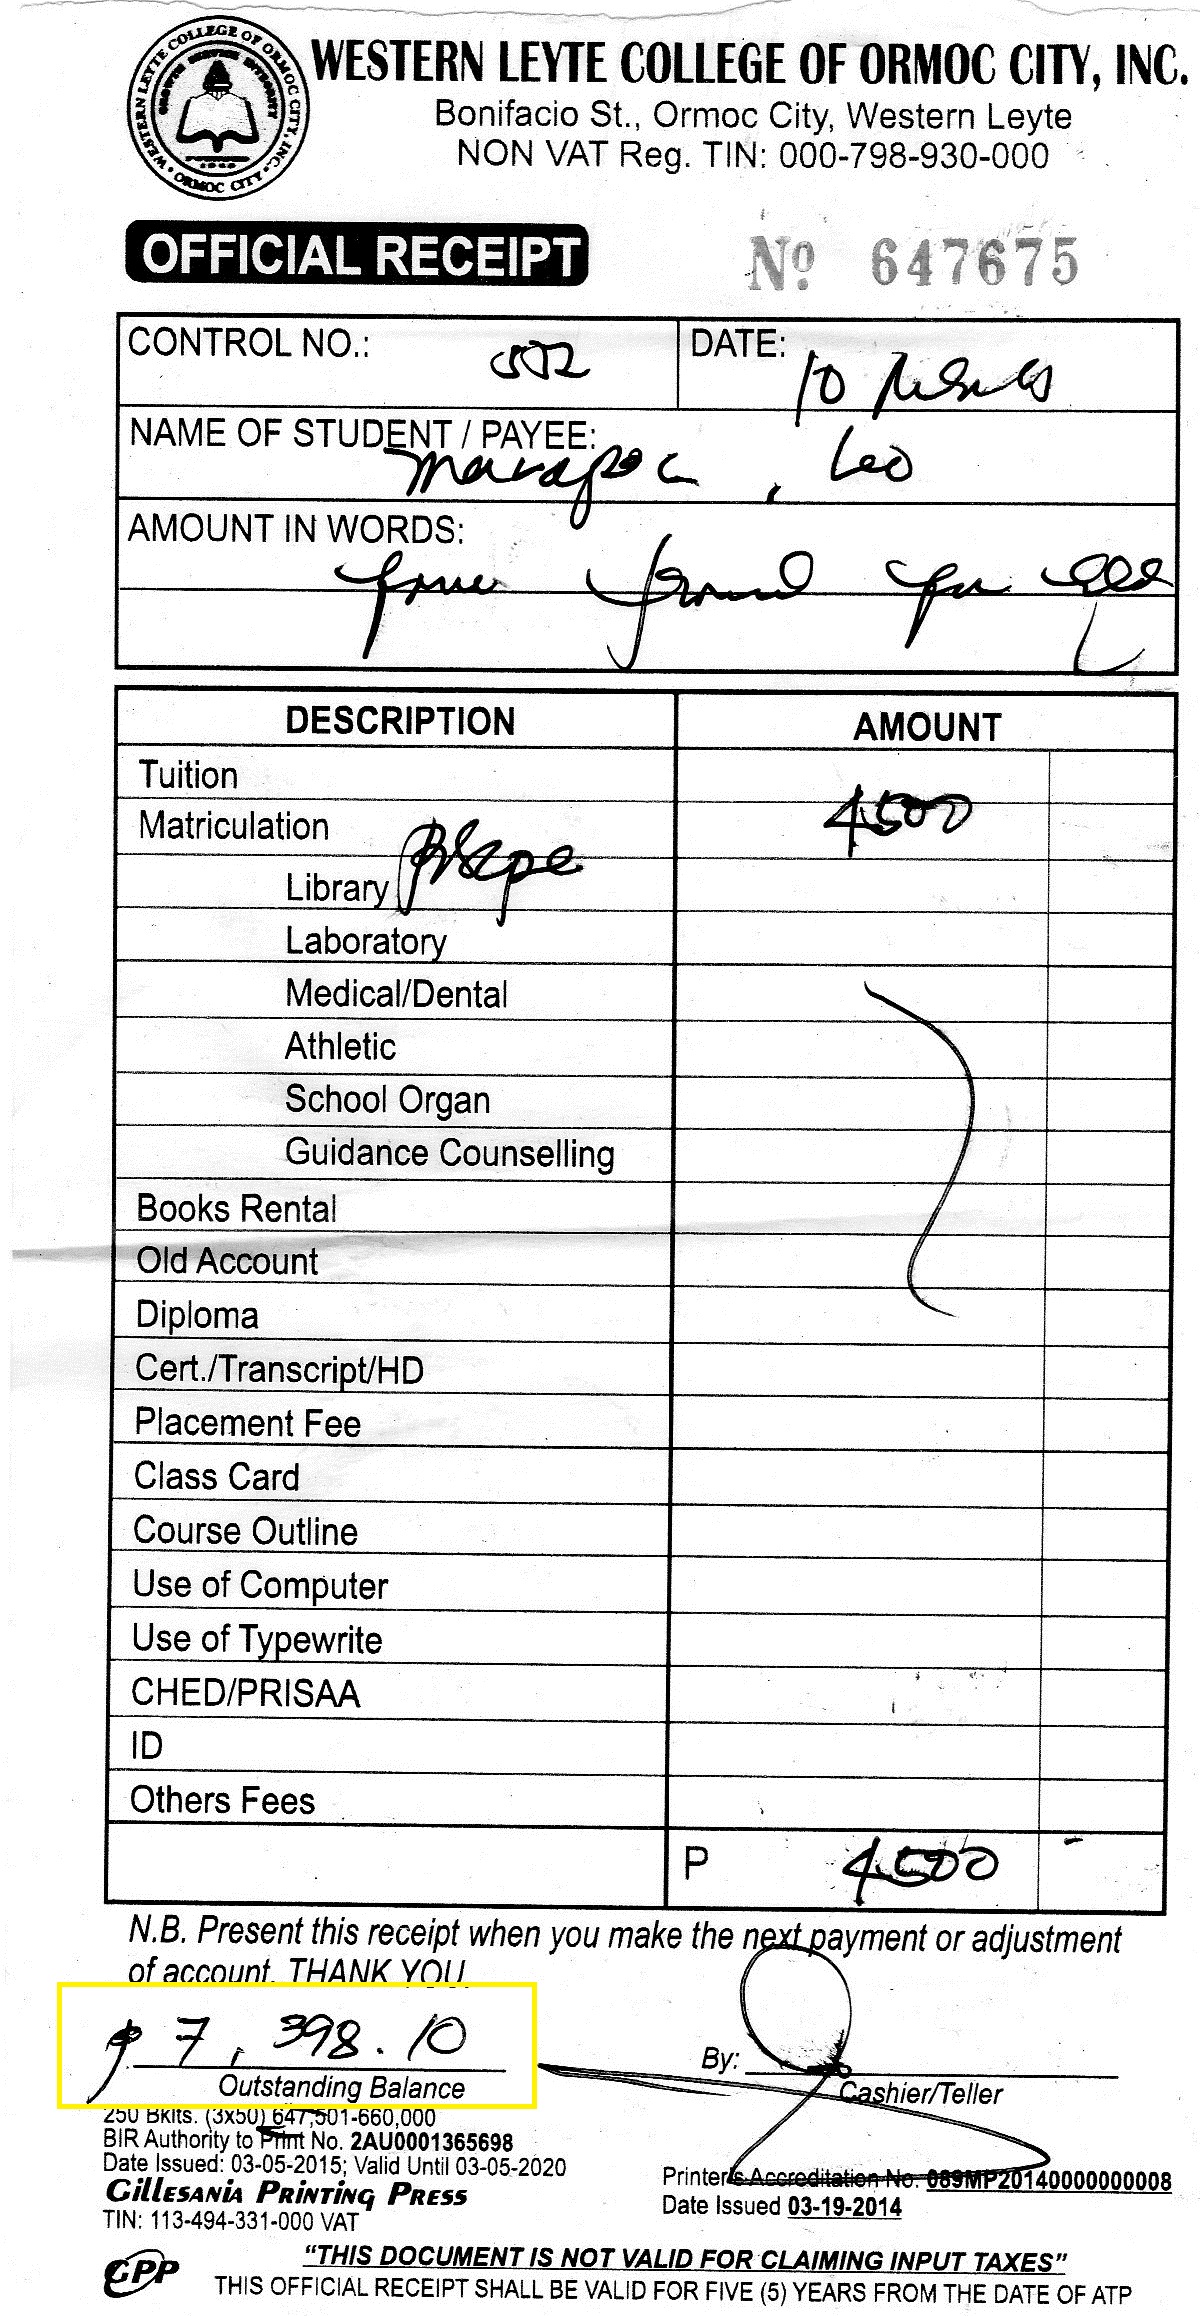 WESTERN LEYTE COLLEGE OF ORMOC CITY, INC.
Bonifacio St., Ormoc City, Western Leyte
NON VAT Reg. TIN: 000-798-930-000
WESTERN LEYTE COLLEGE OF ORMOC CITY, INC.
ORMOC CITY
OFFICIAL RECEIPT Nº 647675
CONTROL NO.: 552 DATE: 10
NAME OF STUDENT / PAYEE:
, Leo
AMOUNT IN WORDS:
DESCRIPTION AMOUNT
Tuition
Matriculation 4500
Library
Laboratory
Medical/Dental
Athletic
School Organ
Guidance Counselling
Books Rental
Old Account
Diploma
Cert./Transcript/HD
Placement Fee
Class Card
Course Outline
Use of Computer
Use of Typewrite
CHED/PRISAA
ID
Others Fees
P 4500 -
N.B. Present this receipt when you make the next payment or adjustment
of account. THANK YOU.
₱ 7,398.10
Outstanding Balance
By:
Cashier/Teller
250 Bklts. (3x50) 647,501-660,000
BIR Authority to Print No. 2AU0001365698
Date Issued: 03-05-2015; Valid Until 03-05-2020
GILLESANIA PRINTING PRESS
TIN: 113-494-331-000 VAT
Printer's Accreditation No. 089MP20140000000008
Date Issued 03-19-2014
GPP
"THIS DOCUMENT IS NOT VALID FOR CLAIMING INPUT TAXES"
THIS OFFICIAL RECEIPT SHALL BE VALID FOR FIVE (5) YEARS FROM THE DATE OF ATP